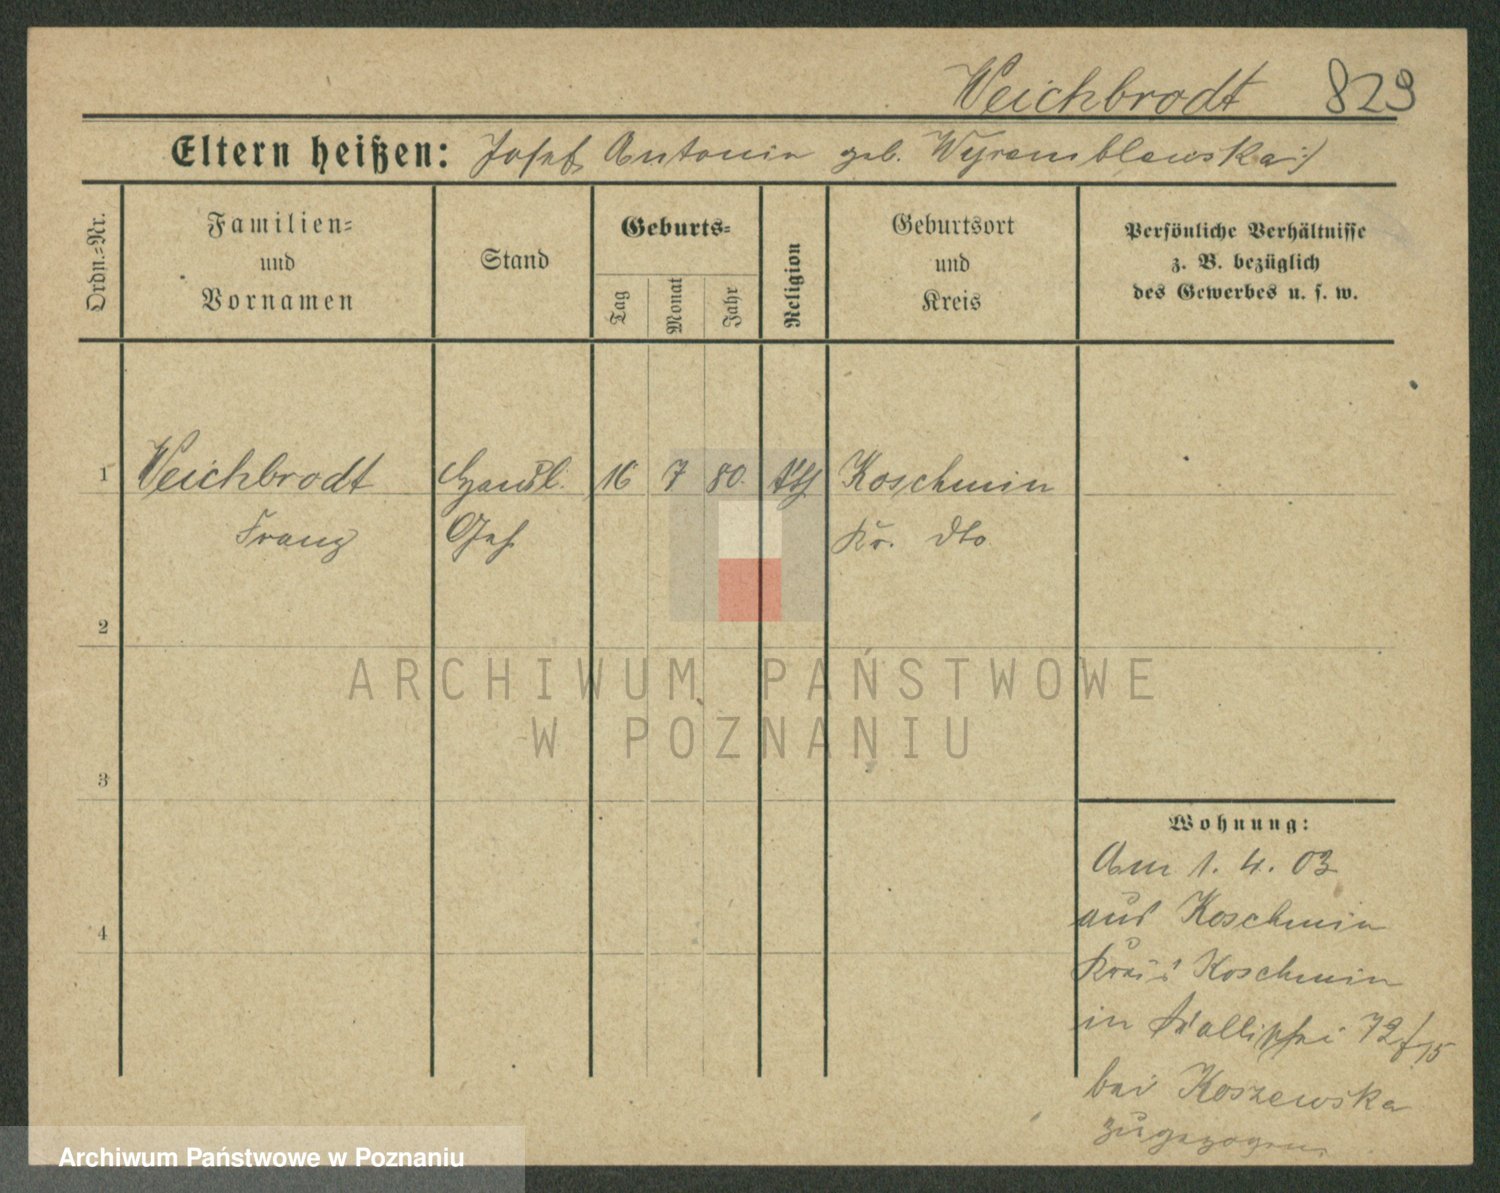 Weichbrodt 829
Eltern heißen: Josef Antonia geb. Wyremblewska :/
Ordn.=Nr.
Familien=
und
Vornamen
Stand
Geburts=
Tag
Monat
Jahr
Religion
Geburtsort
und
Kreis
Persönliche Verhältnisse
z. B. bezüglich
des Gewerbes u. s. w.
1 Weichbrodt Handl. 16 7 80. Kth Koschmin
Franz Geh. Kr. dto
2
3
4
ARCHIWUM PAŃSTWOWE
W POZNANIU
Wohnung:
Am 1. 4. 03
aus Koschmin
Kreis Koschmin
in 72/15
bei Koszewska
zugezogen.
Archiwum Państwowe w Poznaniu